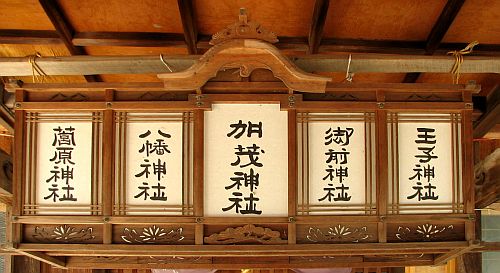 王子神社
御前神社
加茂神社
八幡神社
薗原神社